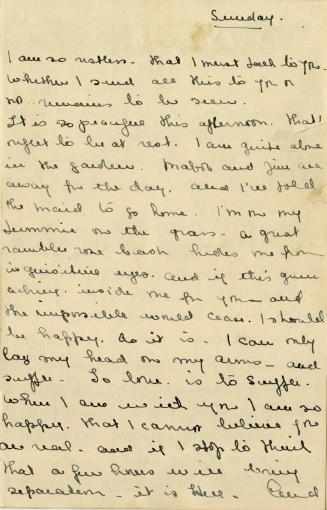 Sunday.
I am so restless - that I must talk to you.
Whether I send all this to you or
not.. remains to be seen.
It is so peaceful this afternoon. that I
ought to be at rest. I am quite alone
in the garden. Mabs and Jim are
away for the day. and I've told
the maid to go home. I'm on my
tummie on the grass - a great
rambler rose bush hides me from
inquisitive eyes. and if this
aching inside me for you - and
the impossible would cease. I should
be happy. As it is - I can only
lay my head on my arms - and
suffer. To love. is to suffer.
When I am with you I am so
happy. that I cannot believe you
are real. and if I stop to think
that a few hours will bring
separation - it is Hell. And